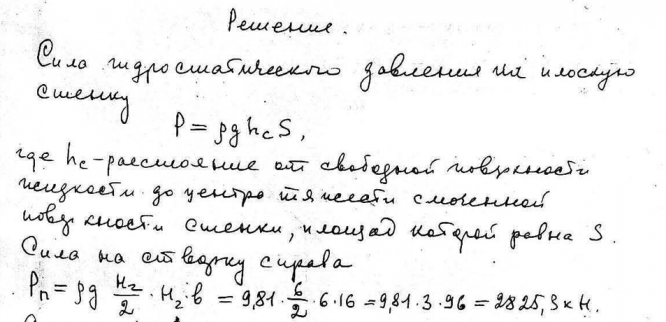 Решение.
Сила гидростатического давления на плоскую
стенку
P = ρg h_c S,
где h_c - расстояние от свободной поверхности
жидкости до центра тяжести смоченной
поверхности стенки, площад которой равна S.
Сила на створку справа
P_п = ρg H_2/2 · H_2 · b = 9,81 · 6/2 · 6 · 16 = 9,81 · 3 · 96 = 2825,3 кН.